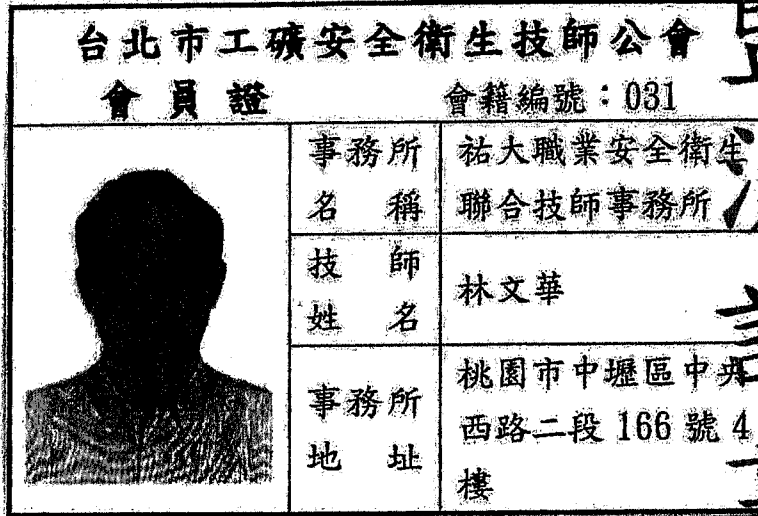 台北市工礦安全衛生技師公會
會員證 會籍編號：031
事務所名稱 祐大職業安全衛生
聯合技師事務所
技師姓名 林文華
事務所地址 桃園市中壢區中央
西路二段 166 號 4
樓